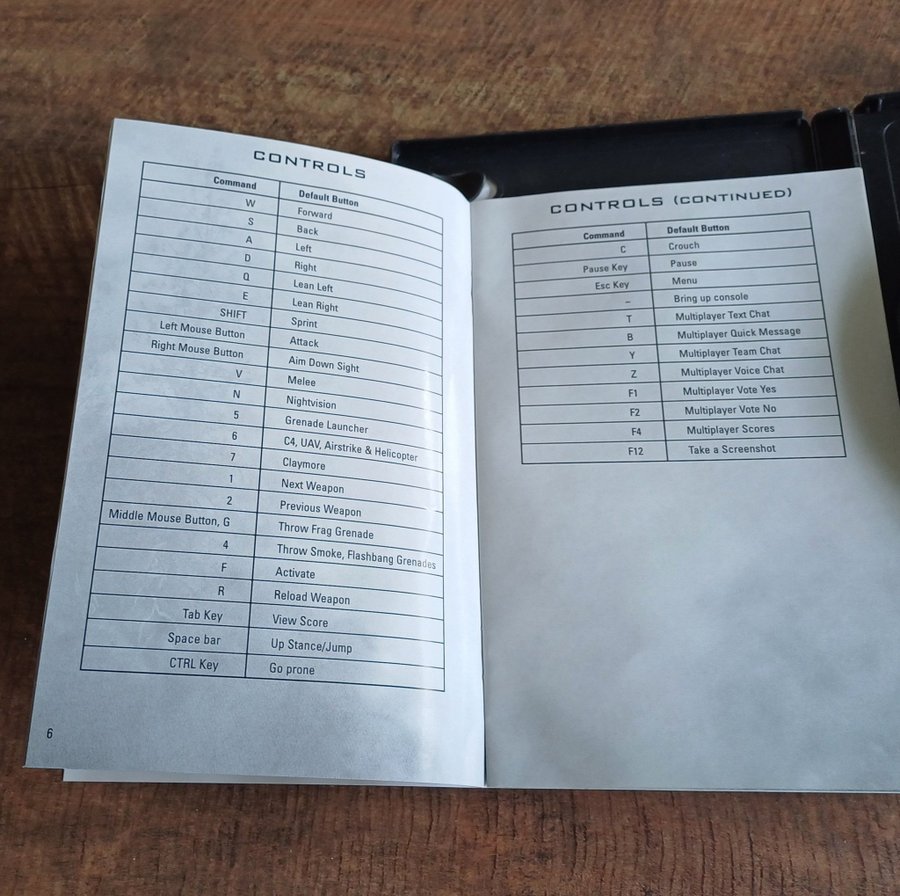 CONTROLS
Command Default Button
W Forward
S Back
A Left
D Right
Q Lean Left
E Lean Right
SHIFT Sprint
Left Mouse Button Attack
Right Mouse Button Aim Down Sight
V Melee
N Nightvision
5 Grenade Launcher
6 C4, UAV, Airstrike & Helicopter
7 Claymore
1 Next Weapon
2 Previous Weapon
Middle Mouse Button, G Throw Frag Grenade
4 Throw Smoke, Flashbang Grenades
F Activate
R Reload Weapon
Tab Key View Score
Space bar Up Stance/Jump
CTRL Key Go prone
6
CONTROLS (CONTINUED)
Command Default Button
C Crouch
Pause Key Pause
Esc Key Menu
– Bring up console
T Multiplayer Text Chat
B Multiplayer Quick Message
Y Multiplayer Team Chat
Z Multiplayer Voice Chat
F1 Multiplayer Vote Yes
F2 Multiplayer Vote No
F4 Multiplayer Scores
F12 Take a Screenshot